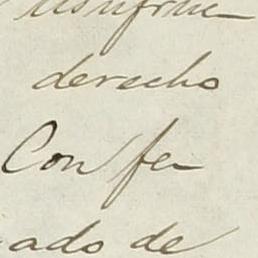 usufruc
derecho
Con fe
ado de